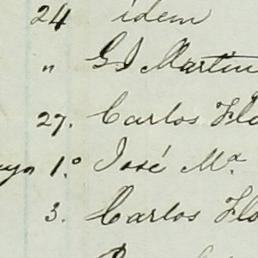 24 idem
" G I Martin
27. Carlos Flo
1.º José Mª
3. Carlos Flo